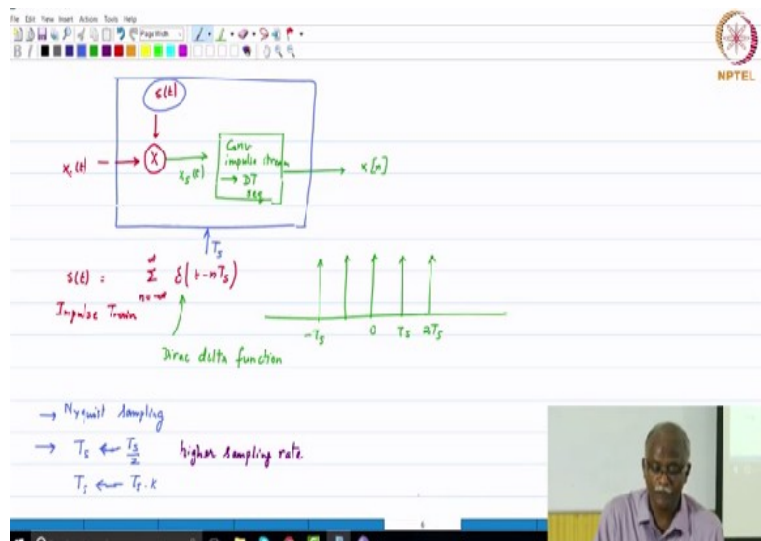 File Edit View Insert Actions Tools Help
Page Width
B I
NPTEL
s(t)
x_c(t)
X
x_s(t)
Conv
impulse stream
→ DT
seq
x[n]
T_s
s(t) = ∞ Σ n=-∞ δ(t-nT_s)
Impulse Train
Dirac delta function
-T_s 0 T_s 2T_s
→ Nyquist Sampling
→ T_s ← T_s/2 higher sampling rate
T_s ← T_s·k
6